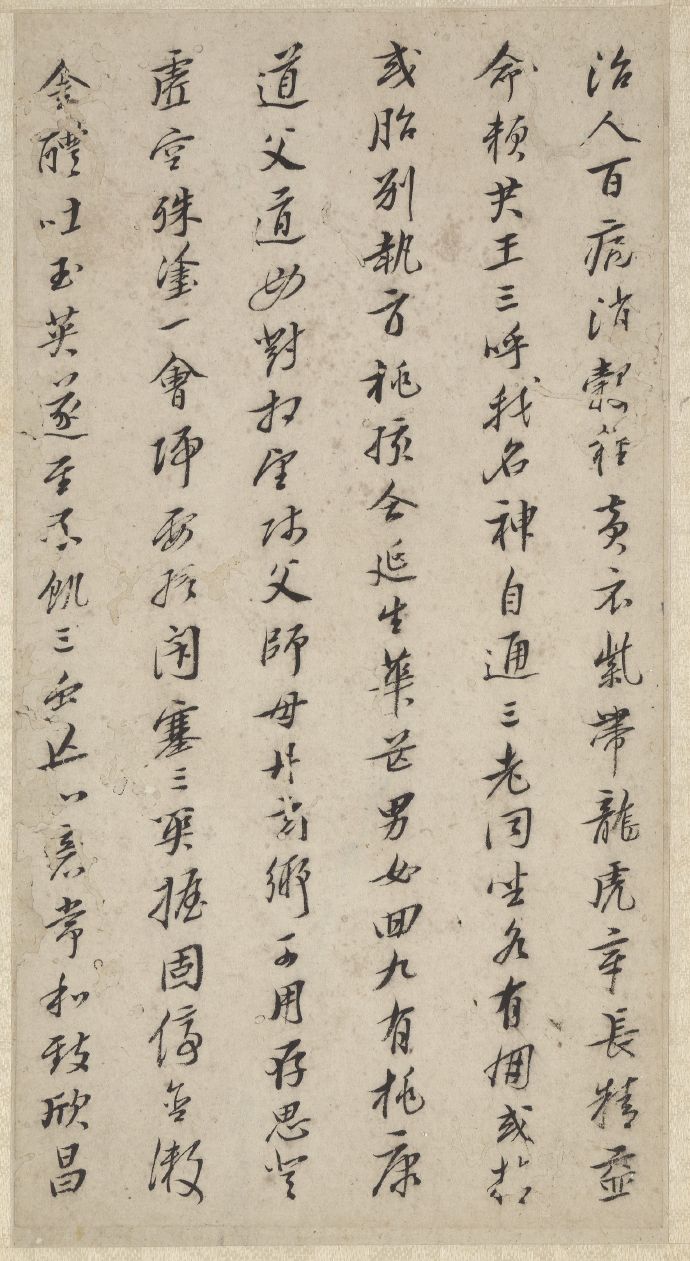 治人百病消穀糧黃衣紫帶龍虎章長精益
命賴君王三呼我名神自通三老同坐各有朋或精
或胎別執方桃孩合延生華芒男女回九有桃康
道父道母對相望師父師母丹玄鄉可用存思登
虛空殊塗一會歸要終閉塞三關握固停含漱
金醴吐玉英遂至不飢三蟲亡心意常和致欣昌